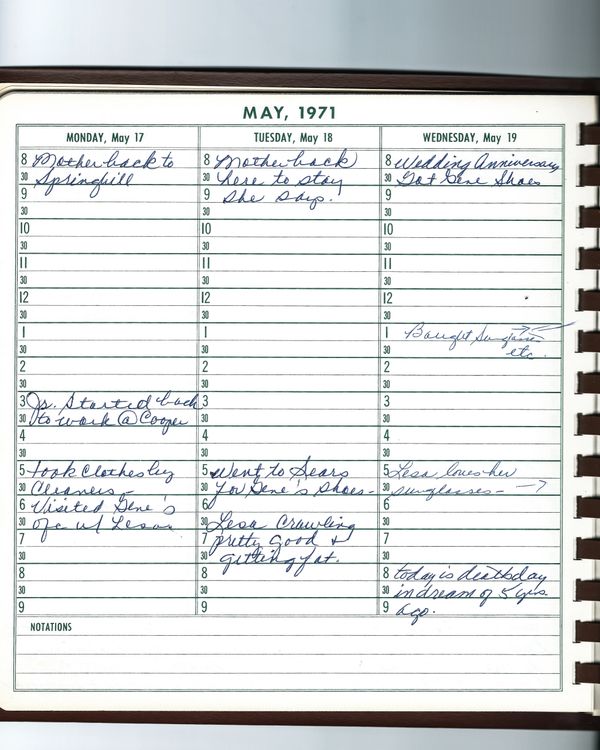 MAY, 1971
MONDAY, May 17
8 Mother back to
30 Springhill
9
30
10
30
11
30
12
30
1
30
2
30
3 Jr. Started back
30 to work @ Cooper
4
30
5 took Clothes by
30 Cleaners -
6 Visited Gene's
30 ofc w/ Lesa
7
30
8
30
9
TUESDAY, May 18
8 Mother back
30 here to stay
9 she says.
30
10
30
11
30
12
30
1
30
2
30
3
30
4
30
5 Went to Sears
30 for Gene's shoes -
6
30 Lesa Crawling
7 pretty good &
30 getting fat.
8
30
9
WEDNESDAY, May 19
8 Wedding Anniversary
30 Got Gene Shoes
9
30
10
30
11
30
12
30
1 Bought
30 etc.
2
30
3
30
4
30
5 Lesa loves her
30 sunglasses - →
6
30
7
30
8 today is deathday
30 in dream of 5 yrs
9 ago.
NOTATIONS